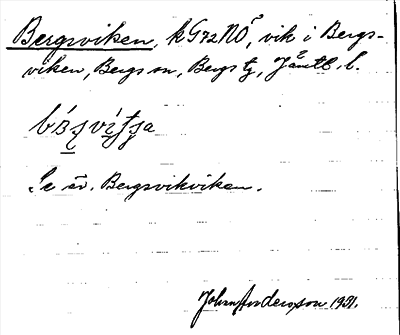 Bergsviken, k G72NÖ, vik i Bergs-
viken, Bergs sn, Bergs tg, Jämtl. l.
Se äv. Bergsvikviken.
John Andersson 1931.